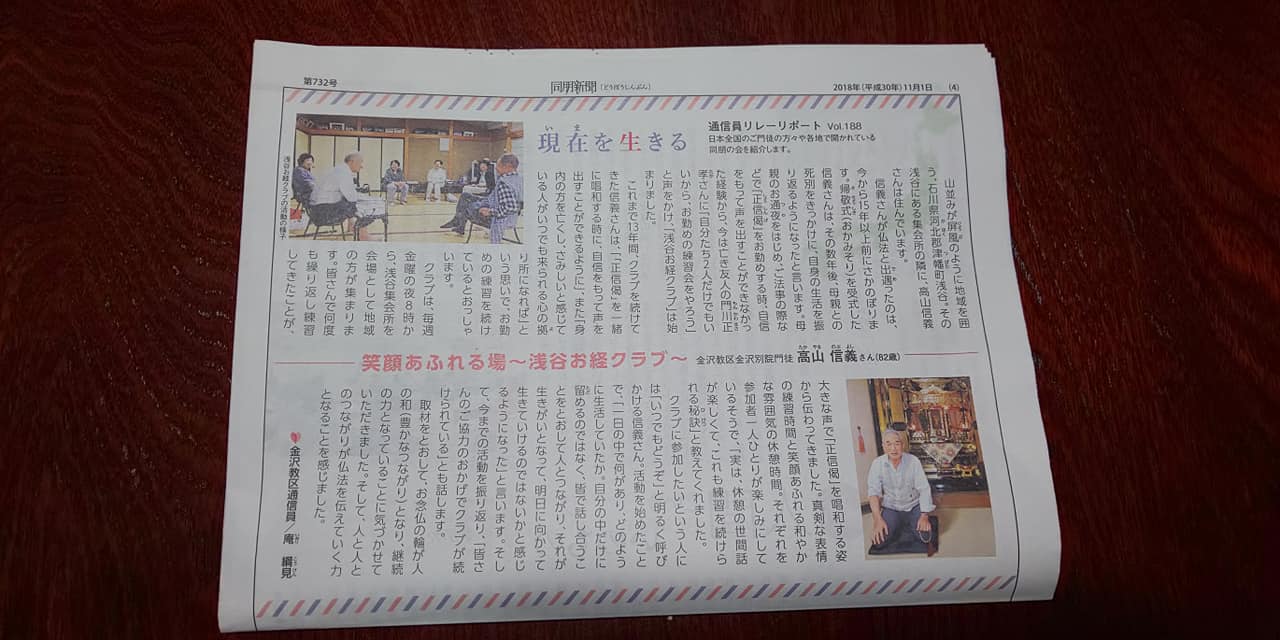 第732号
同朋新聞 [どうぼうしんぶん]
2018年(平成30年)11月1日 (4)
現在を生きる
いま
通信員リレーリポート Vol.188
日本全国のご門徒の方々や各地で開かれている
同朋の会を紹介します。
浅谷お経クラブの活動の様子
山並みが屏風のように地域を囲
う、石川県河北郡津幡町浅谷。その
浅谷にある集会所の隣に、高山信義
さんは住んでいます。
信義さんが仏法と出遇ったのは、
今から15年以上前にさかのぼりま
す。帰敬式(おかみそり)を受式した
信義さんは、その数年後、母親との
死別をきっかけに、自身の生活を振
り返るようになったと言います。母
親のお通夜をはじめ、ご法事の際な
どで「正信偈」をお勤めする時、自信
をもって声を出すことができなかっ
た経験から、今は亡き友人の門川正
孝さんに「自分たち2人だけでもい
いから、お勤めの練習会をやろう」
と声をかけ、「浅谷お経クラブ」は始
まりました。
これまで13年間、クラブを続けて
きた信義さんは、「『正信偈』を一緒
に唱和する時に、自信をもって声を
出すことができるように」、また「身
内の方を亡くし、さみしいと感じて
いる人がいつでも来られる心の拠
り所になれれば」と
いう思いで、お勤
めの練習を続け
ているとおっしゃ
います。
クラブは毎週
金曜の夜8時か
ら、浅谷集会所を
会場として地域
の方が集まりま
す。皆さんで何度
も繰り返し練習
してきたことが、
笑顔あふれる場～浅谷お経クラブ～
金沢教区金沢別院門徒 高山 信義さん(82歳)
たか やま のぶ よし
大きな声で「正信偈」を唱和する姿
から伝わってきました。真剣な表情
の練習時間と笑顔あふれる和やか
な雰囲気の休憩時間。それぞれを
参加者一人ひとりが楽しみにして
いるそうで、「実は、休憩の世間話
が楽しくて、これも練習を続けら
れる秘訣」と教えてくれました。
クラブに参加したいという人に
は「いつでもどうぞ」と明るく呼び
かける信義さん。活動を始めたこと
で、「一日の中で何があり、どのよう
に生活していたか。自分の中だけに
留めるのではなく、皆で話し合うこ
とをとおして人とつながり、それが
生きがいとなって、明日に向かって
生きていけるのではないかと感じ
るようになった」と言います。そし
て、今までの活動を振り返り、「皆さ
んのご協力のおかげでクラブが続
けられている」とも話します。
取材をとおして、お念仏の輪が人
の和(豊かなつながり)となり、継続
の力となっていることに気づかせて
いただきました。そして、人と人と
のつながりが仏法を伝えていく力
となることを感じました。
金沢教区通信員／庵 綱見